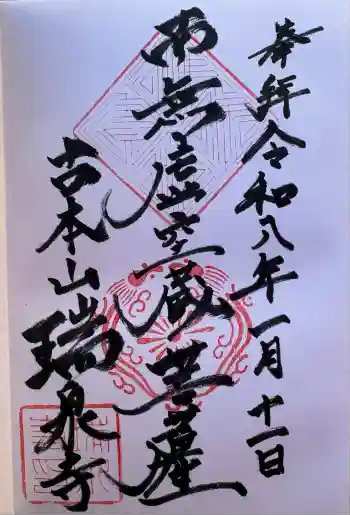 奉拝 令和八年一月十一日
南無虚空蔵菩薩
古本山瑞泉寺